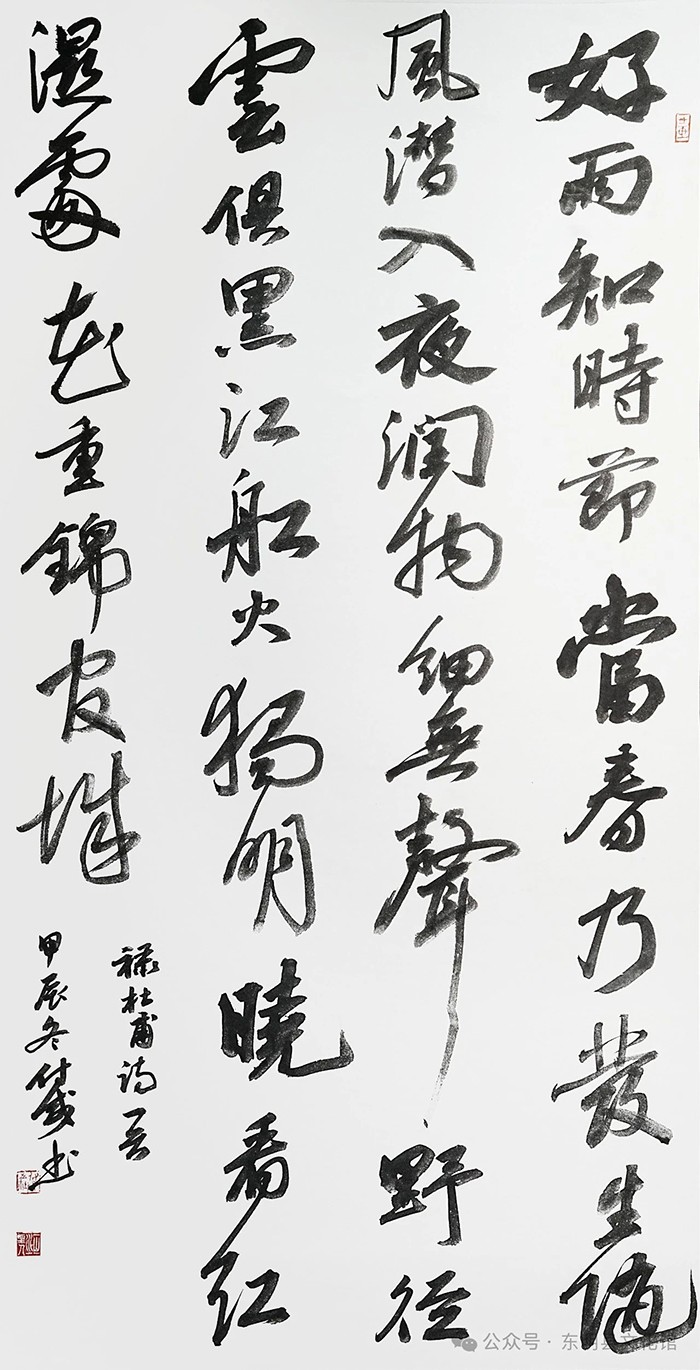 好雨知時節當春乃發生随
風潜入夜潤物細無聲野徑
雲俱黑江船火獨明曉看紅
濕處花重錦官城
録杜甫詩一首
甲辰冬付书
公众号·东明县文化馆